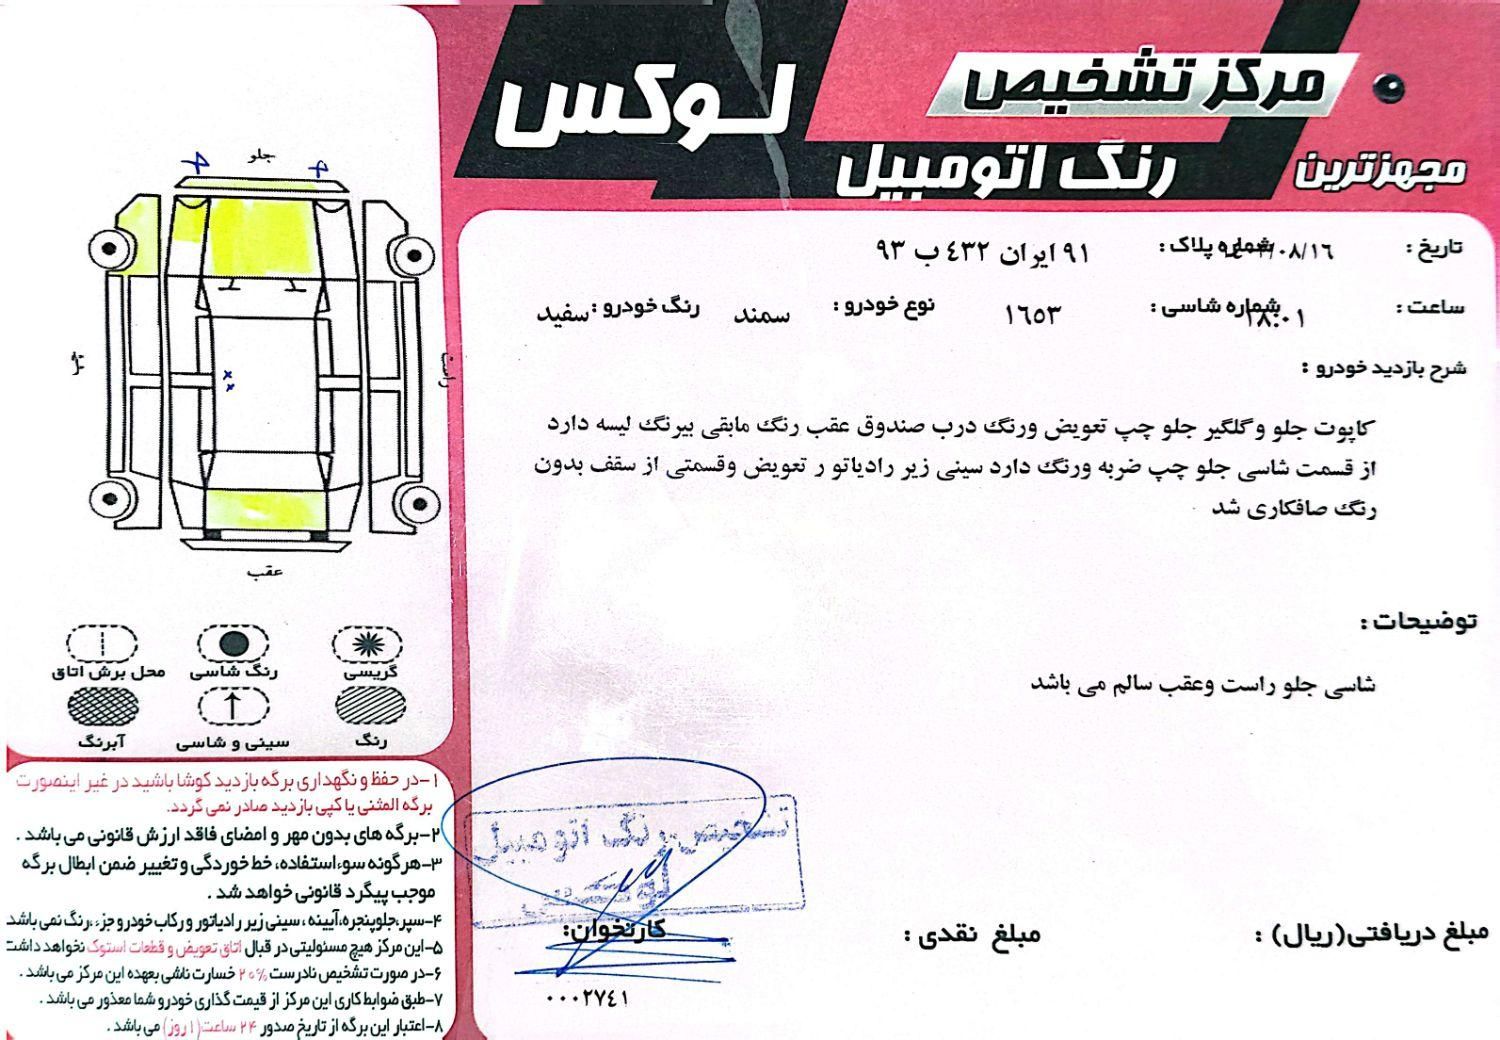 مرکز تشخیص
لوکس
رنگ اتومبیل
مجهزترین
تاریخ : /۰۸/۱۶ شماره پلاک : ۹۱ ایران ۴۳۲ ب ۹۳
ساعت : ۱۸:۰۱ شماره شاسی : ۱۶۵۳ نوع خودرو : سمند رنگ خودرو : سفید
شرح بازدید خودرو :
کاپوت جلو وگلگیر جلو چپ تعویض ورنگ درب صندوق عقب رنگ مابقی بیرنگ لیسه دارد
از قسمت شاسی جلو چپ ضربه ورنگ دارد سینی زیر رادیاتو ر تعویض وقسمتی از سقف بدون
رنگ صافکاری شد
توضیحات :
شاسی جلو راست وعقب سالم می باشد
تشخیص رنگ اتومبیل
لوکس
مبلغ دریافتی(ریال) : مبلغ نقدی : کارتخوان:
۰۰۰۲۷۴۱
جلو
راست
چپ
عقب
گریسی رنگ شاسی محل برش اتاق
رنگ سینی و شاسی آبرنگ
۱-در حفظ و نگهداری برگه بازدید کوشا باشید در غیر اینصورت
برگه المثنی یا کپی بازدید صادر نمی گردد.
۲-برگه های بدون مهر و امضای فاقد ارزش قانونی می باشد .
۳-هرگونه سوءاستفاده، خط خوردگی و تغییر ضمن ابطال برگه
موجب پیگرد قانونی خواهد شد .
۴-سپر،جلوپنجره،آیینه ، سینی زیر رادیاتور و رکاب خودرو جزء ،رنگ نمی باشد
۵-این مرکز هیچ مسئولیتی در قبال اتاق تعویض و قطعات استوک نخواهد داشت
۶-در صورت تشخیص نادرست ۲۰% خسارت ناشی بعهده این مرکز می باشد .
۷-طبق ضوابط کاری این مرکز از قیمت گذاری خودرو شما معذور می باشد .
۸-اعتبار این برگه از تاریخ صدور ۲۴ ساعت(۱ روز) می باشد .